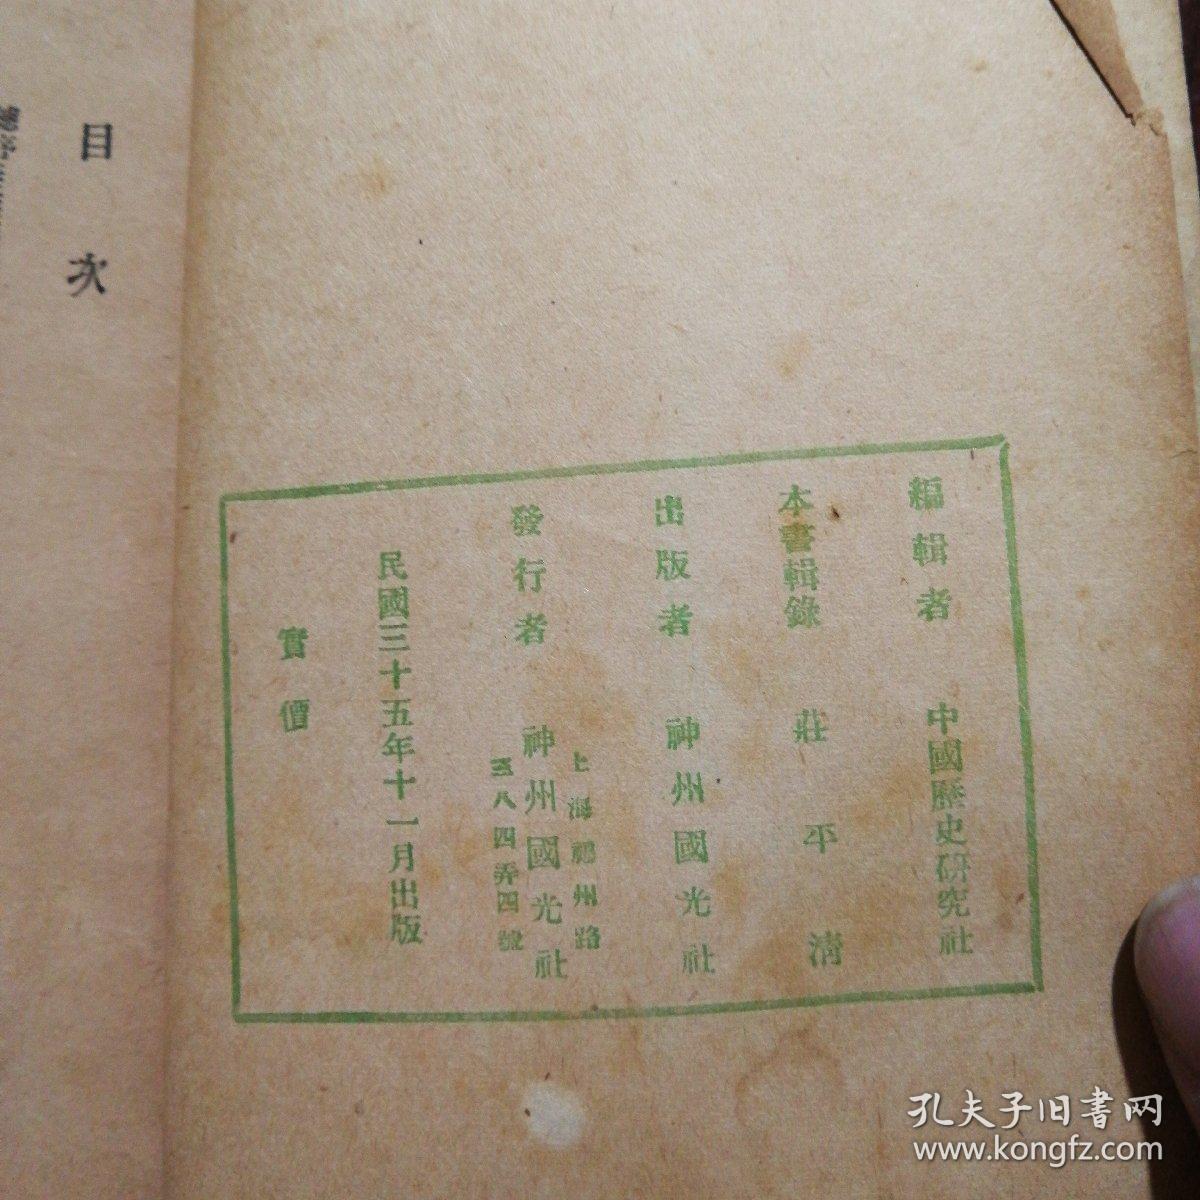 編輯者 中國歷史研究社
本書輯錄 莊平清
出版者 神州國光社
上海祁州路
發行者 神州國光社
八四弄四號
民國三十五年十一月出版
實價
目次
孔夫子旧書网
www.kongfz.com